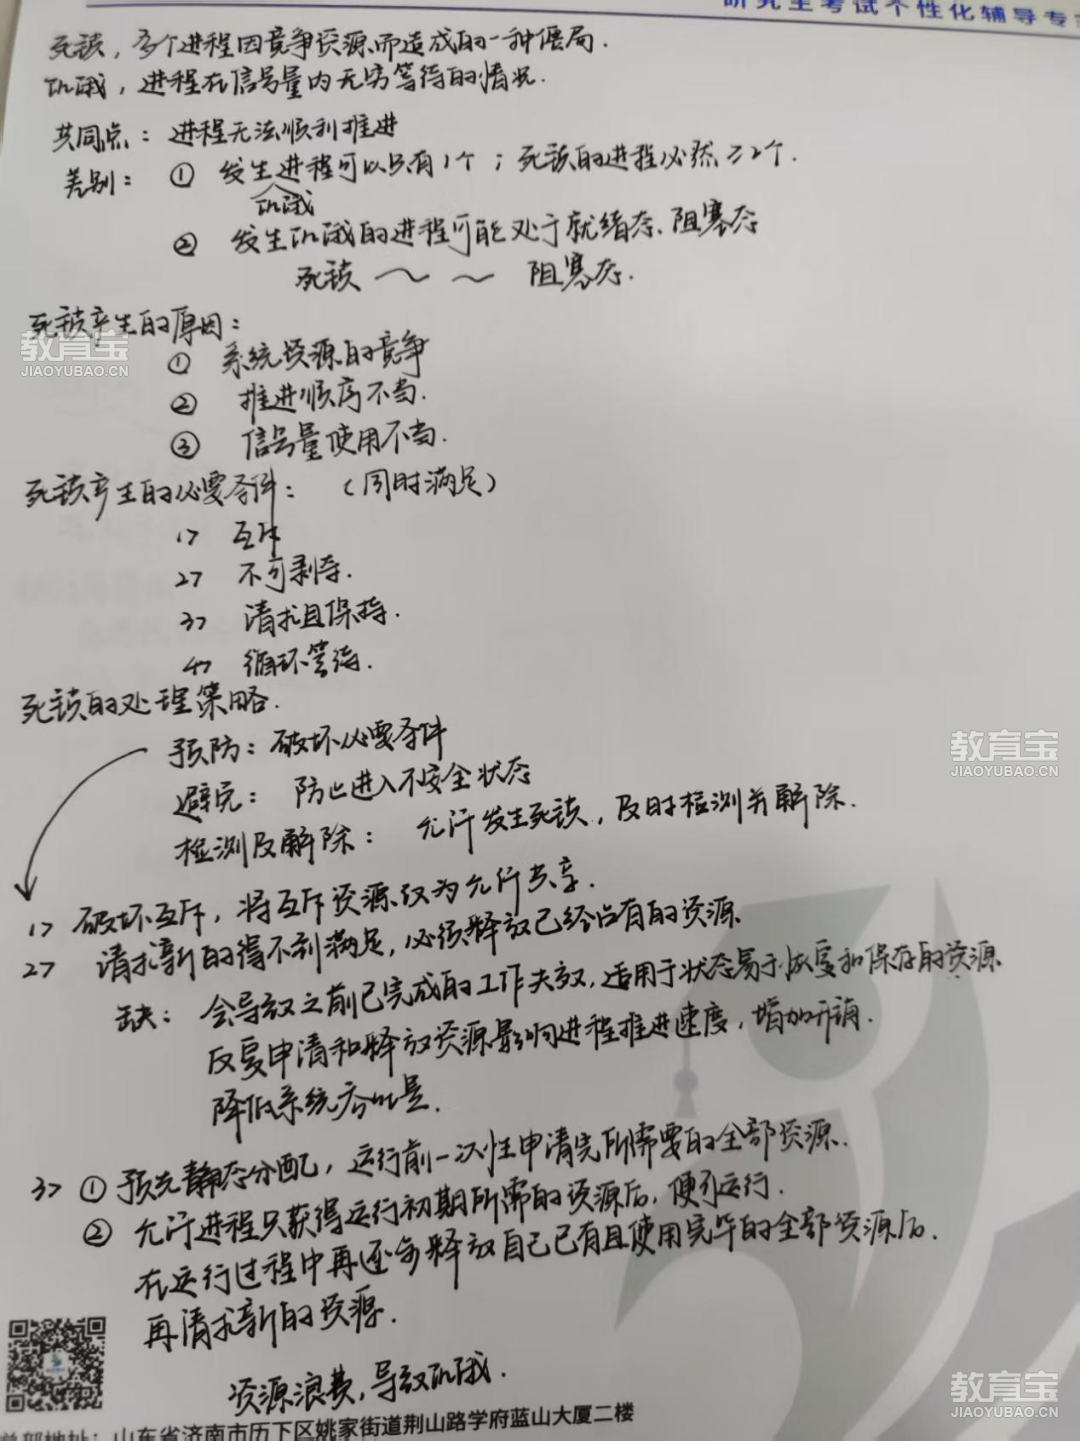 研究生考试个性化辅导专
死锁，多个进程因竞争资源而造成的一种僵局．
饥饿，进程在信号量内无穷等待的情况．
共同点：进程无法顺利推进
差别：① 发生进程可以只有1个；死锁的进程必然≥2个．
饥饿
② 发生饥饿的进程可能处于就绪态、阻塞态
死锁 ～ ～ 阻塞态．
死锁产生的原因：
① 系统资源的竞争
② 推进顺序不当．
③ 信号量使用不当．
死锁产生的必要条件：（同时满足）
1> 互斥
2> 不可剥夺．
3> 请求且保持．
4> 循环等待．
死锁的处理策略．
预防：破坏必要条件
避免：防止进入不安全状态
检测及解除：允许发生死锁，及时检测并解除．
1> 破坏互斥，将互斥资源改为允许共享．
2> 请求新的得不到满足，必须释放已经占有的资源．
缺：会导致之前已完成的工作失效，适用于状态易于恢复和保存的资源
反复申请和释放资源影响进程推进速度，增加开销．
降低系统吞吐量．
3> ① 预先静态分配，运行前一次性申请完所需要的全部资源．
② 允许进程只获得运行初期所需的资源后，便可运行．
在运行过程中再逐步释放自己已有且使用完毕的全部资源后．
再请求新的资源．
资源浪费，导致饥饿．
总部地址：山东省济南市历下区姚家街道荆山路学府蓝山大厦二楼
教育宝
JIAOYUBAO.CN
教育宝
JIAOYUBAO.CN
教育宝
JIAOYUBAO.CN